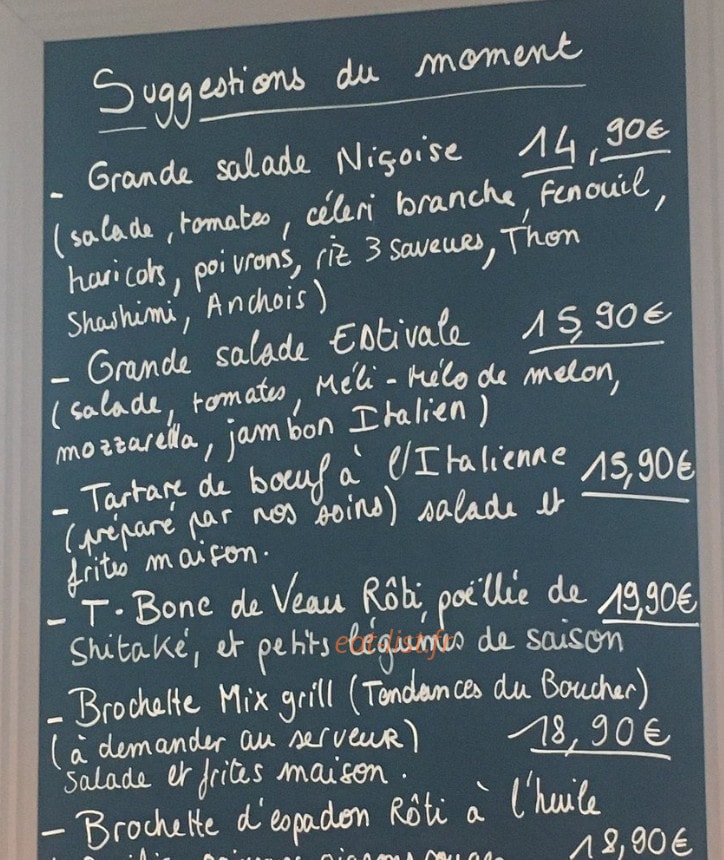 Suggestions du moment
- Grande salade Niçoise 14,90€
(salade, tomates, céleri branche, Fenouil,
haricots, poivrons, riz 3 saveurs, Thon
Shashimi, Anchois)
- Grande salade Estivale 15,90€
(salade, tomates, Méli-Mélo de melon,
mozzarella, jambon Italien)
- Tartare de bœuf à l'Italienne 15,90€
(préparé par nos soins) salade et
frites maison.
- T-Bone de Veau Rôti, poëllée de 19,90€
Shitaké, et petits légumes de saison
eatdist.fr
- Brochette Mix grill (Tendances du Boucher)
(à demander au serveur) 18,90€
Salade et frites maison.
- Brochette d'espadon Rôti à l'huile
18,90€